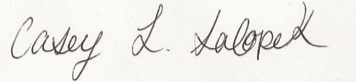 Casey L. Salopek